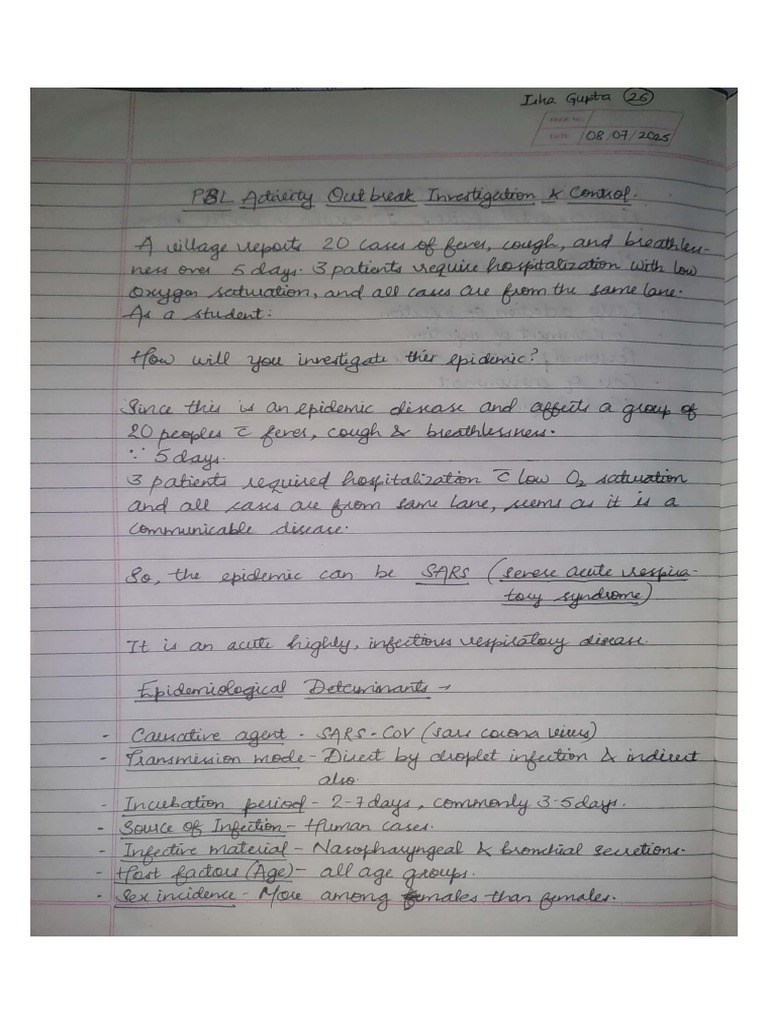 Isha Gupta (26)
PAGE NO.
DATE 08/07/2025
PBL Activity Outbreak Investigation & Control.
A village reports 20 cases of fever, cough, and breathless-
ness over 5 days. 3 patients require hospitalization with low
oxygen saturation, and all cases are from the same lane.
As a student:
How will you investigate this epidemic?
Since this is an epidemic disease and affects a group of
20 peoples c̄ fever, cough & breathlessness.
∵ 5 days.
3 patients required hospitalization c̄ low O2 saturation
and all cases are from same lane, seems as it is a
communicable disease.
So, the epidemic can be SARS (severe acute respira-
tory syndrome)
It is an acute highly, infectious respiratory disease.
Epidemiological Determinants →
- Causative agent - SARS-CoV (sars corona virus)
- Transmission mode - Direct by droplet infection & indirect
also.
- Incubation period - 2-7 days, commonly 3-5 days.
- Source of Infection - Human cases.
- Infective material - Nasopharyngeal & bronchial secretions.
- Host factors (Age) - all age groups.
- Sex incidence - More among males than females.